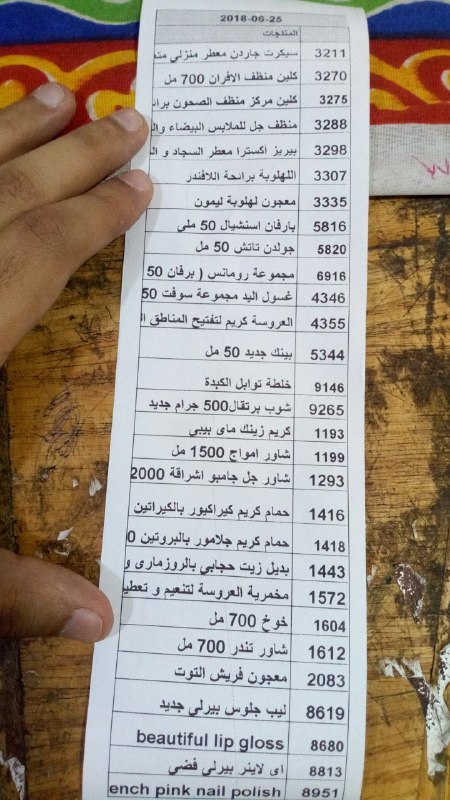 2018-06-25
المنتجات
3211 سيكرت جاردن معطر منزلي
3270 كلين منظف الافران 700 مل
3275 كلين مركز منظف الصحون
3288 منظف جل للملابس البيضاء
3298 بيريز اكسترا معطر السجاد و
3307 اللهلوبة برائحة اللافندر
3335 معجون لهلوبة ليمون
5816 بارفان اسنشيال 50 ملي
5820 جولدن تاتش 50 مل
6916 مجموعة رومانس ( برفان 50
4346 غسول اليد مجموعة سوفت 50
4355 العروسة كريم لتفتيح المناطق
5344 بينك جديد 50 مل
9146 خلطة توابل الكبدة
9265 شوب برتقال500 جرام جديد
1193 كريم زينك ماى بيبي
1199 شاور امواج 1500 مل
1293 شاور جل جامبو اشراقة 2000
1416 حمام كريم كيراكيور بالكيراتين
1418 حمام كريم جلامور بالبروتين
1443 بديل زيت حجابي بالروزمارى و
1572 مخمرية العروسة لتنعيم و
1604 خوخ 700 مل
1612 شاور تندر 700 مل
2083 معجون فريش التوت
8619 ليب جلوس بيرلي جديد
8680 beautiful lip gloss
8813 اى لاينر بيرلي فضي
8951 ench pink nail polish